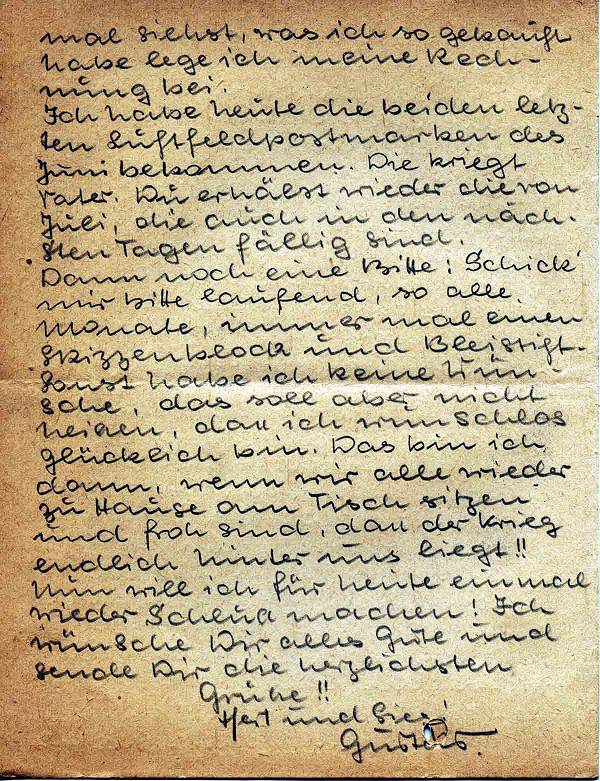 mal siehst, was ich so gekauft
habe lege ich meine Rech-
nung bei.
Ich habe heute die beiden letz-
ten Luftfeldpostmarken des
Juni bekommen. Die kriegt
Vater. Du erhälst wieder die von
Juli, die auch in den näch-
sten Tagen fällig sind.
Dann noch eine Bitte: Schick'
mir bitte laufend, so alle
Monate, immer mal einen
Skizzenblock und Bleistift.
Sonst habe ich keine Wün-
sche, das soll aber nicht
heißen, daß ich wunschlos
glücklich bin. Das bin ich
dann, wenn wir alle wieder
zu Hause am Tisch sitzen
und froh sind, daß der Krieg
endlich hinter uns liegt!!
Nun will ich für heute einmal
wieder Schluß machen! Ich
wünsche Dir alles Gute und
sende Dir die herzlichsten
Grüße!!
Heil und Sieg!
Gustav.